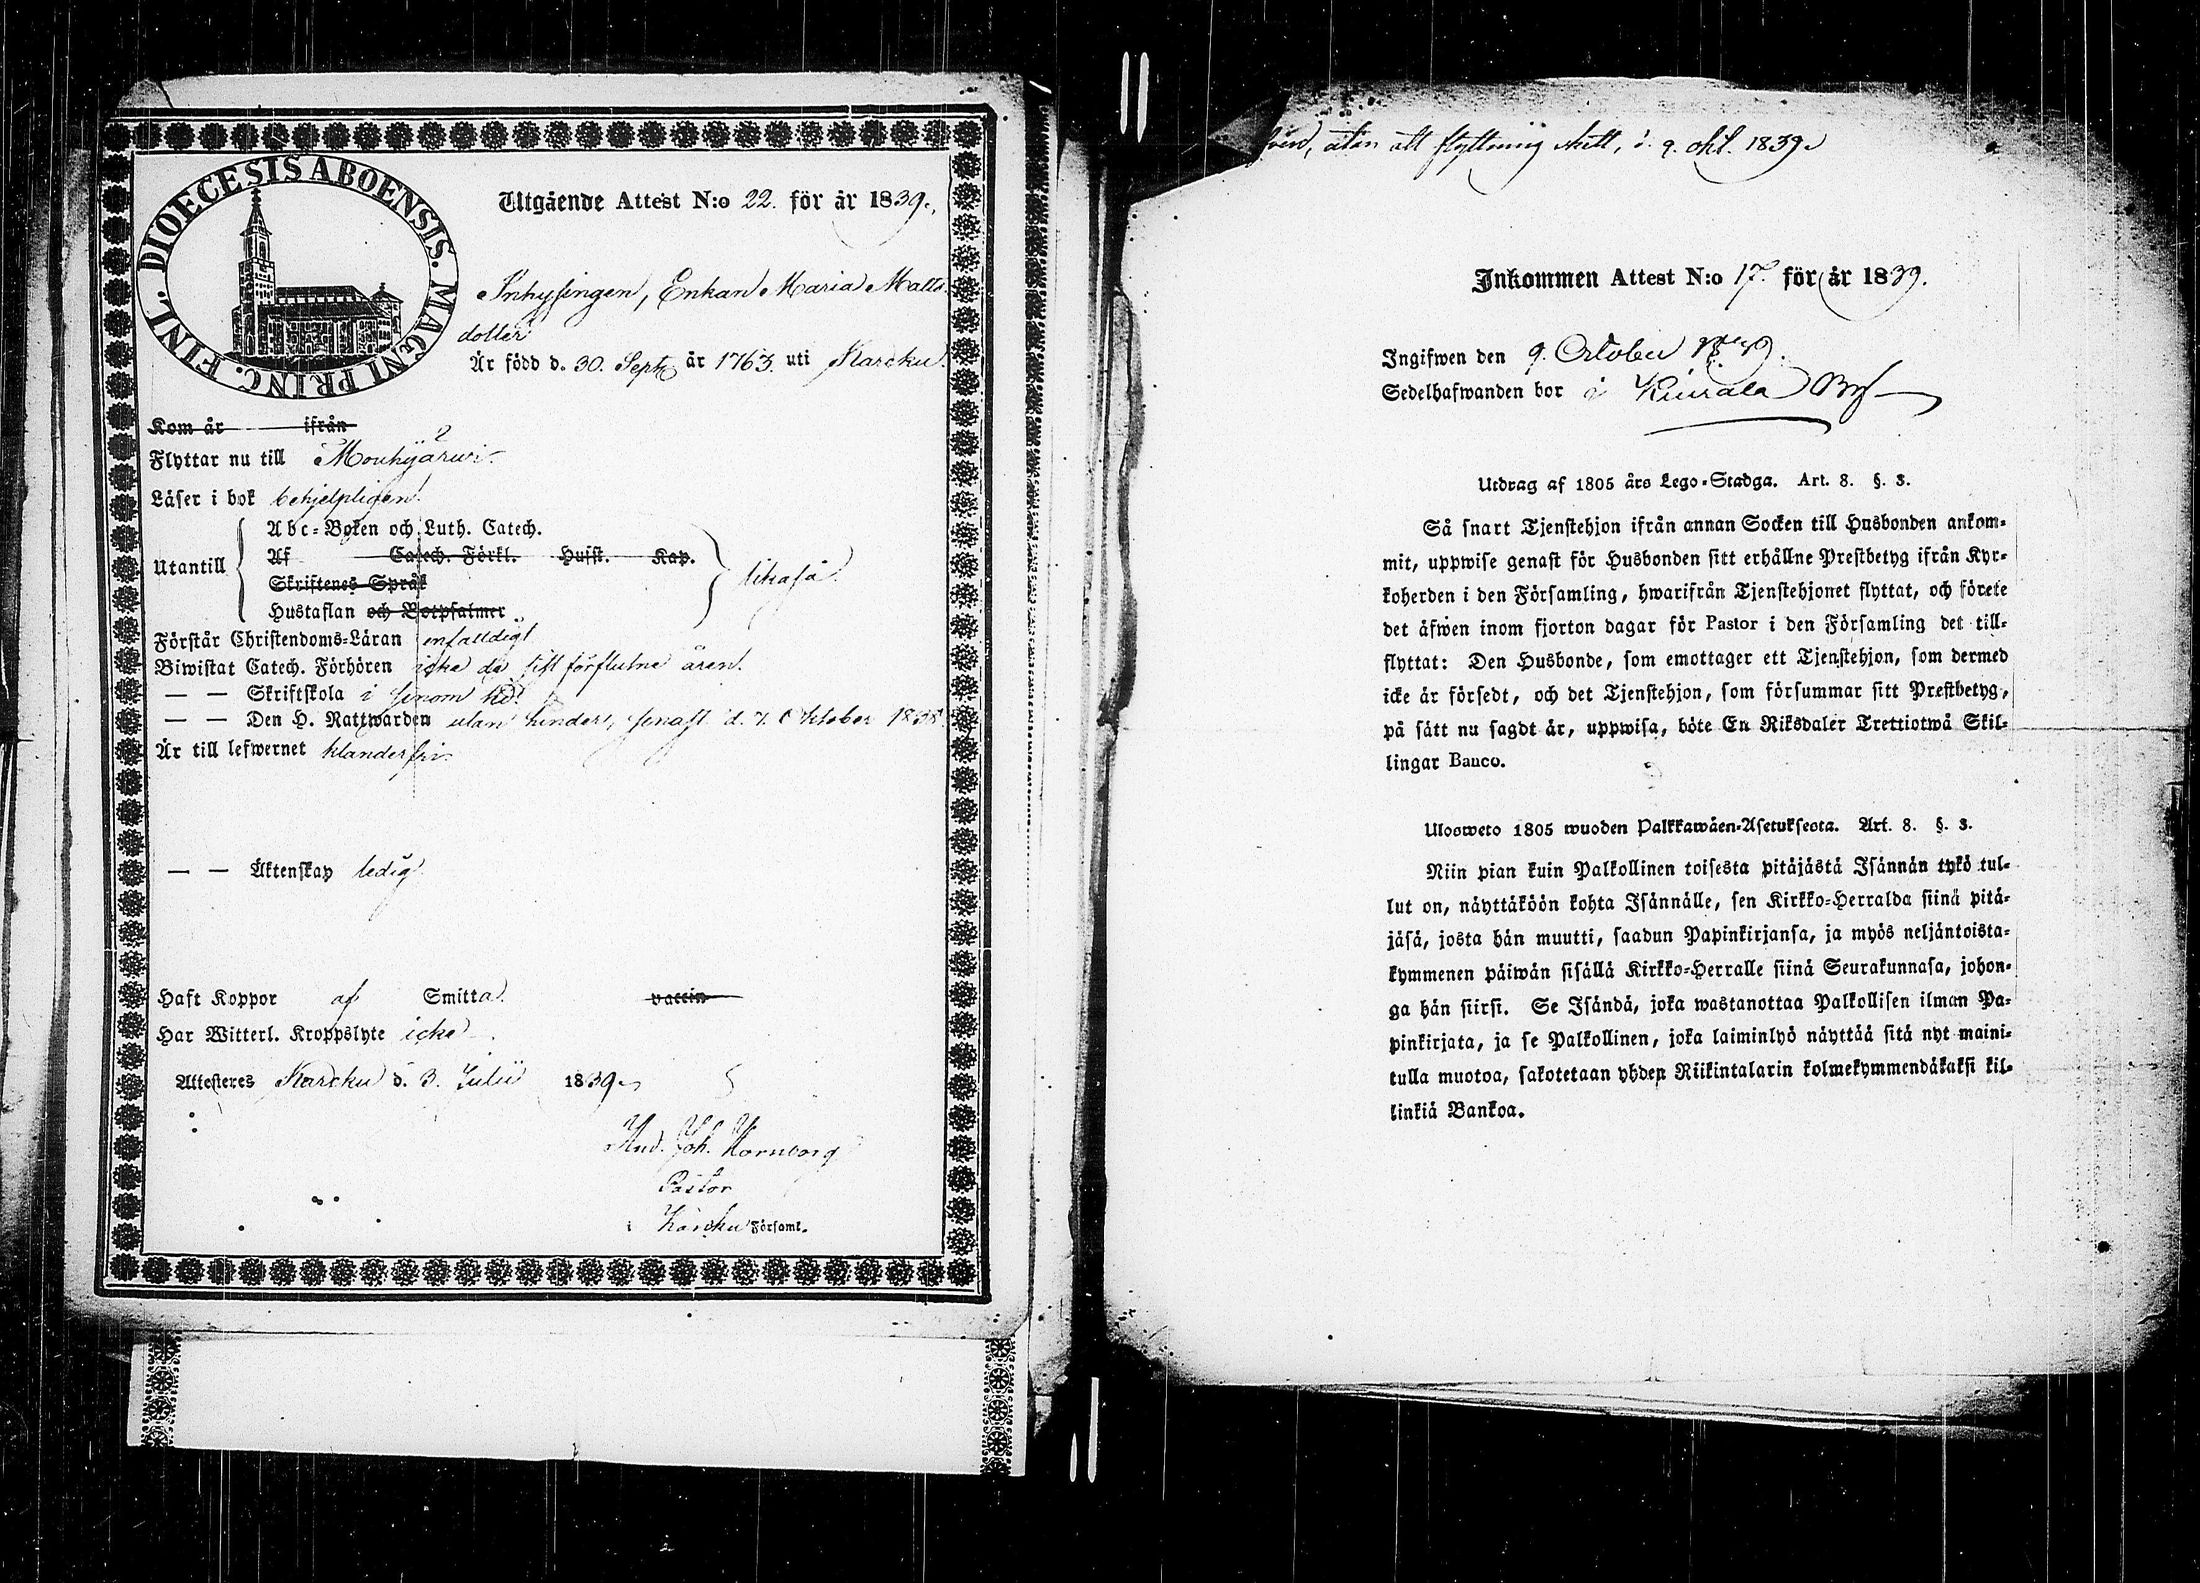 DIOECESIS ABOENSIS. MAGNI PRINC. FINL.
Utgående Attest N:o 22. för år 1839.
Inhysingen, Enkan Maria Matts
dotter
Är född d. 30. Sept. år 1763. uti Karcku.
Kom år ifrån
Flyttar nu till Mouhijärvi.
Läser i bok behjelpligen.
Abc-Boken och Luth. Catech.
Af Catech. Förkl. Husst. Kap.
Utantill likaså.
Skriftenes Språk
Hustaflan och Botpsalmer
Förstår Christendoms-Läran enfaldigt
Biwistat Catech. Förhören icke de sist förflutne åren.
— — Skriftskola i sinom tid.
— — Den H. Nattwarden utan hinder, senast d. 7. Oktober 1838
Är till lefwernet klanderfri.
— — Äktenskap ledig.
Haft Koppor af Smitta. vaccin
Har Witterl. Kroppslyte icke.
Attesteres Karcku d. 3. Julii 1839.
And. Joh. Hornborg
Pastor
i Karcku Församl.
utan att flyttning skett, d. 9. okt. 1839.
Inkommen Attest N:o 17. för år 1839.
Ingifwen den 9. October 1839.
Sedelhafwanden bor i Kiurala By
Utdrag af 1805 års Lego-Stadga. Art. 8. §. 3.
Så snart Tjenstehjon ifrån annan Socken till Husbonden ankom-
mit, uppwise genast för Husbonden sitt erhållne Prestbetyg ifrån Kyr-
koherden i den Församling, hwarifrån Tjenstehjonet flyttat, och förete
det äfwen inom fjorton dagar för Pastor i den Församling det till-
flyttat: Den Husbonde, som emottager ett Tjenstehjon, som dermed
icke är försedt, och det Tjenstehjon, som försummar sitt Prestbetyg,
på sätt nu sagdt är, uppwisa, böte En Riksdaler Trettiotwå Skil-
lingar Banco.
Ulosweto 1805 wuoden Palkkawäen-Asetuksesta. Art. 8. §. 3.
Niin pian kuin Palkollinen toisesta pitäjästä Isännän tykö tul-
lut on, näyttäköön kohta Isännälle, sen Kirkko-Herralda siinä pitä-
jäsä, josta hän muutti, saadun Papinkirjansa, ja myös neljäntoista-
kymmenen päiwän sisällä Kirkko-Herralle siinä Seurakunnasa, johon-
ga hän siirsi. Se Isändä, joka wastanottaa Palkollisen ilman Pa-
pinkirjata, ja se Palkollinen, joka laiminlyö näyttää sitä nyt maini-
tulla muotoa, sakotetaan yhden Riikintalarin kolmekymmendäkaksi kil-
linkiä Bankoa.